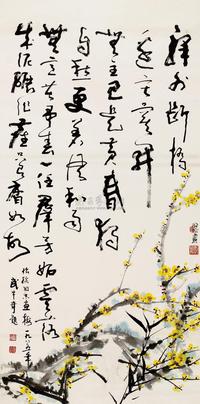 驛外斷橋
邊寂寞開
無主已是黄昏獨
自愁更著風和雨
無意苦争春一任群芳妒零落
成泥碾作塵只有香如故
一九八五年
武中奇題